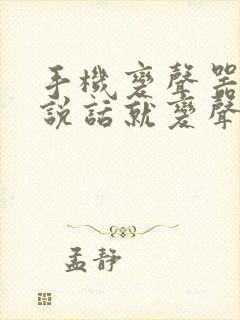 手機變聲器
說話就變聲
孟靜